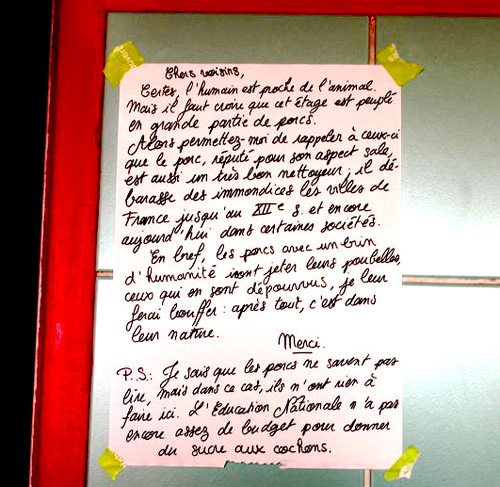 Chers voisins,
Certes, l'humain est proche de l'animal.
Mais il faut croire que cet étage est peuplé
en grande partie de porcs.
Alors permettez-moi de rappeler à ceux-ci
que le porc, réputé pour son aspect sale,
est aussi un très bon nettoyeur ; il dé-
barasse des immondices les villes de
France jusqu'au XIIe s. et encore
aujourd'hui dans certaines sociétés.
En bref, les porcs avec un brin
d'humanité iront jeter leurs poubelles,
ceux qui en sont dépourvus, je leur
ferai bouffer : après tout, c'est dans
leur nature.
Merci.
P.S.: Je sais que les porcs ne savent pas
lire, mais dans ce cas, ils n'ont rien à
faire ici. L'Éducation Nationale n'a pas
encore assez de budget pour donner
du sucre aux cochons.